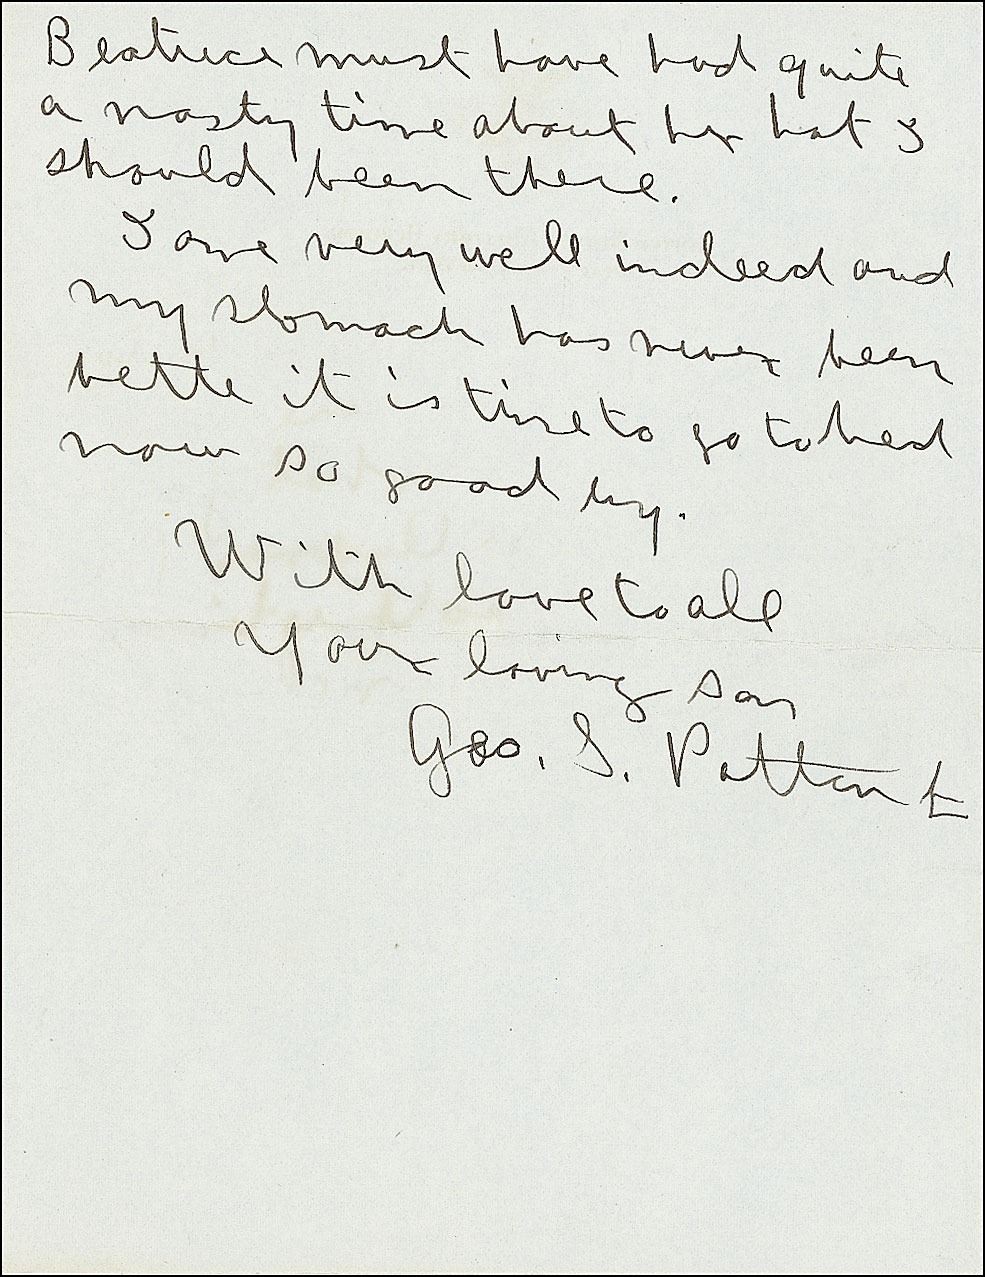 Beatrice must have had quite
a nasty time about her hat I
should been there.
I ame very well indeed and
my stomach has never been
bette it is time to go to bed
now so good by.
With love to all
Your loving son
Geo. S. Patton Jr